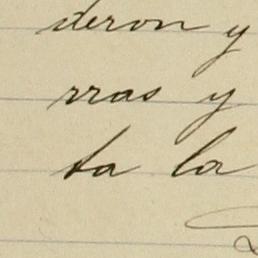 deron y
rras y
ta la